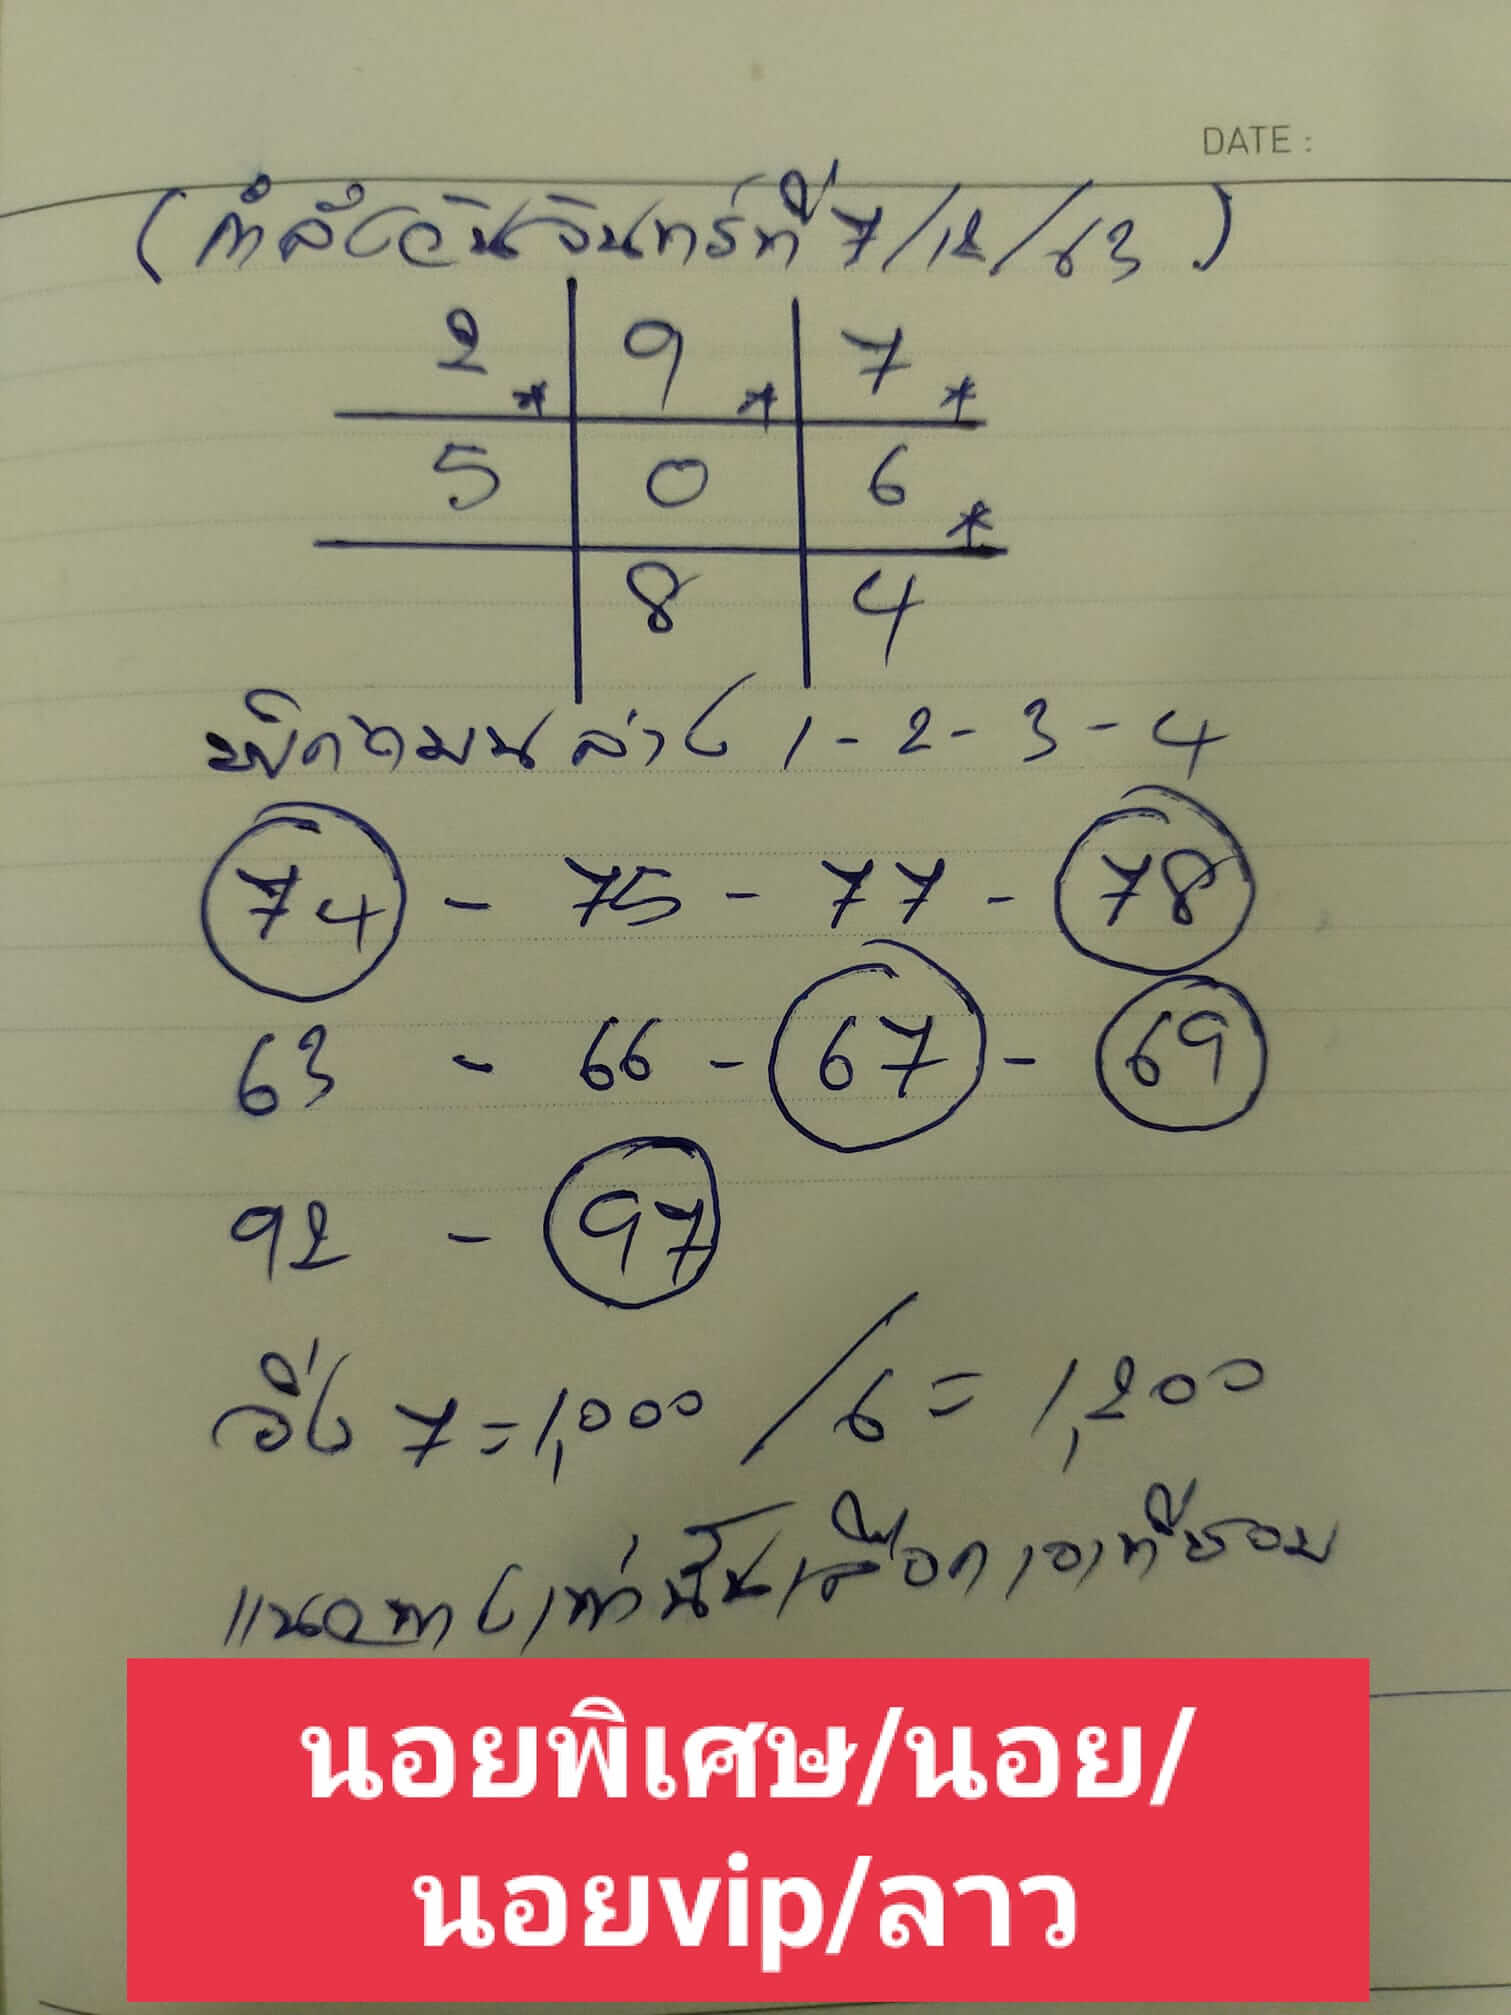 DATE :
(กำลังวันจันทร์ที่ 7/12/63)
2 * 9 * 7 *
5 0 6 *
8 4
พิกัดบนล่าง 1-2-3-4
74 - 75 - 77 - 78
63 - 66 - 67 - 69
92 - 97
วิ่ง 7=1,000 / 6 = 1,200
แนวทางเท่านั้นเลือกเอาที่ชอบ
นอยพิเศษ/นอย/
นอยvip/ลาว